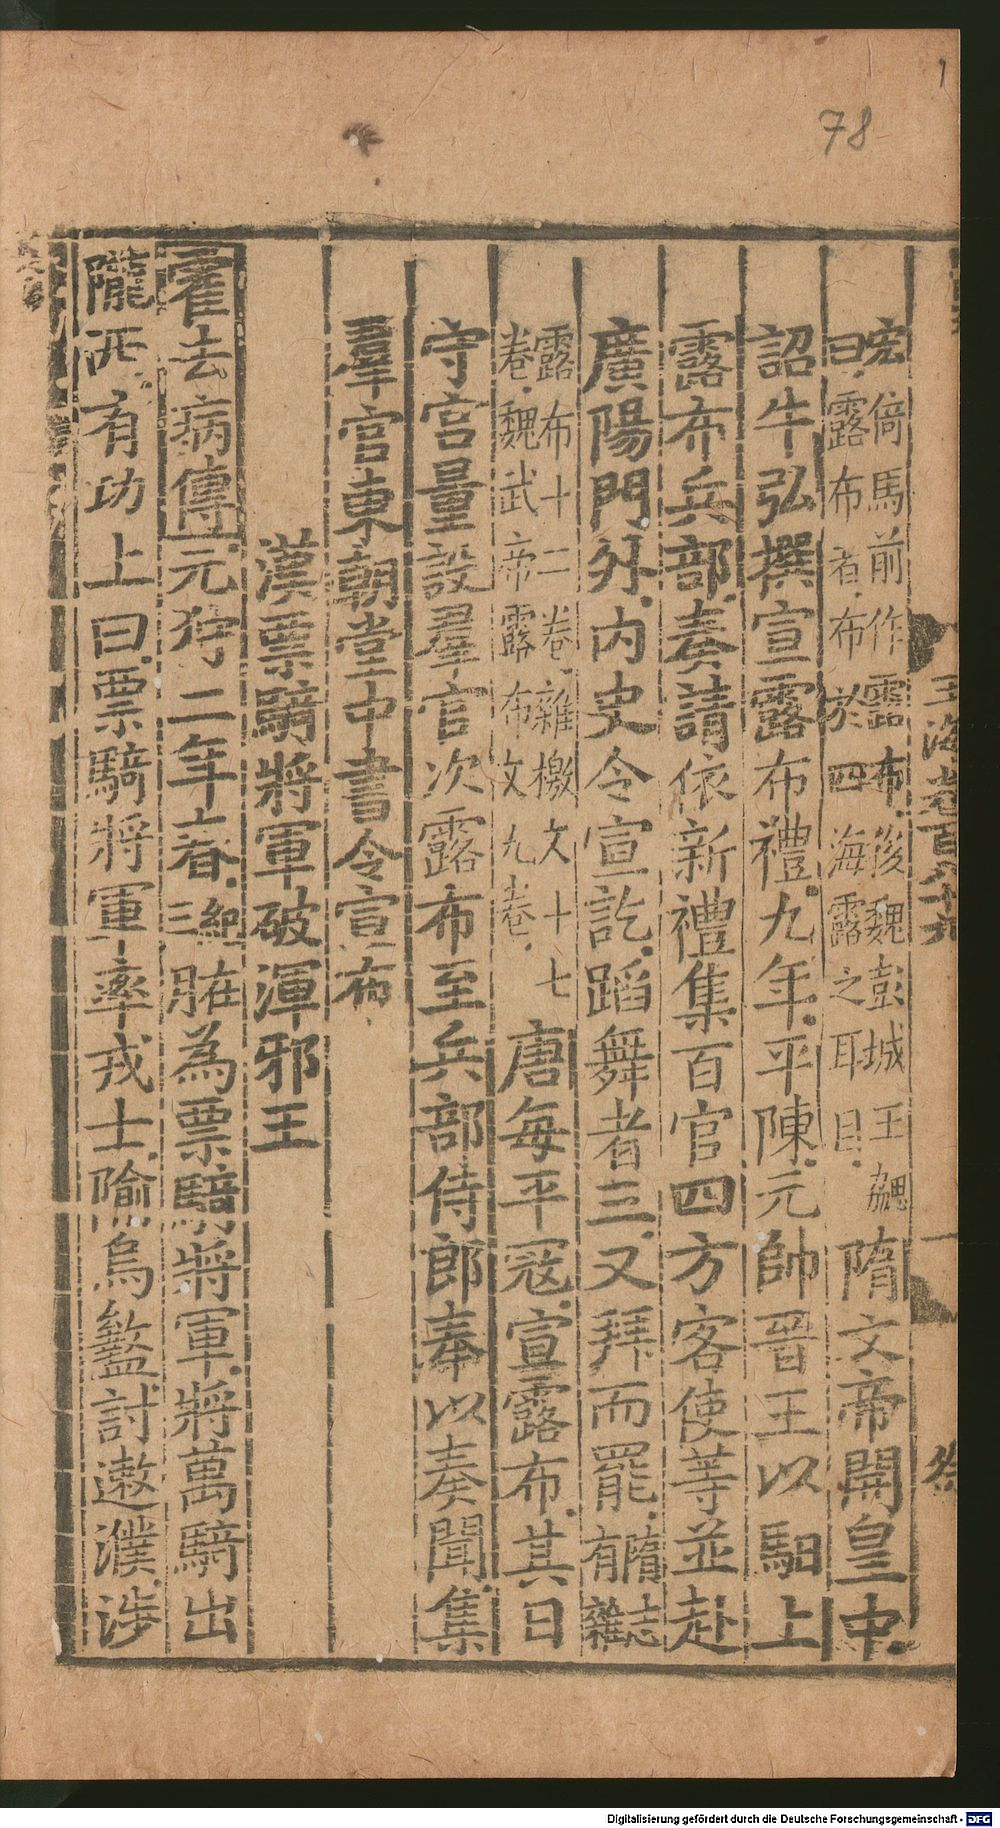 78
玉海卷百八十九
宏倚馬前作露布後魏彭城王勰
曰露布者布於四海露之耳目
隋文帝開皇中
詔牛弘撰宣露布禮九年平陳元帥晉王以馹上
露布兵部奏請依新禮集百官四方客使等並赴
廣陽門外內史令宣訖蹈舞者三又拜而罷隋志有雜
露布十二卷雜檄文十七
卷魏武帝露布文九卷
唐每平寇宣露布其日
守宮量設羣官次露布至兵部侍郎奉以奏聞集
羣官東朝堂中書令宣布
漢票騎將軍破渾邪王
霍去病傳元狩二年春三絕脃為票騎將軍將萬騎出
隴西有功上曰票騎將軍率戎士隃烏盭討遬濮涉
Digitalisierung gefördert durch die Deutsche Forschungsgemeinschaft - DFG